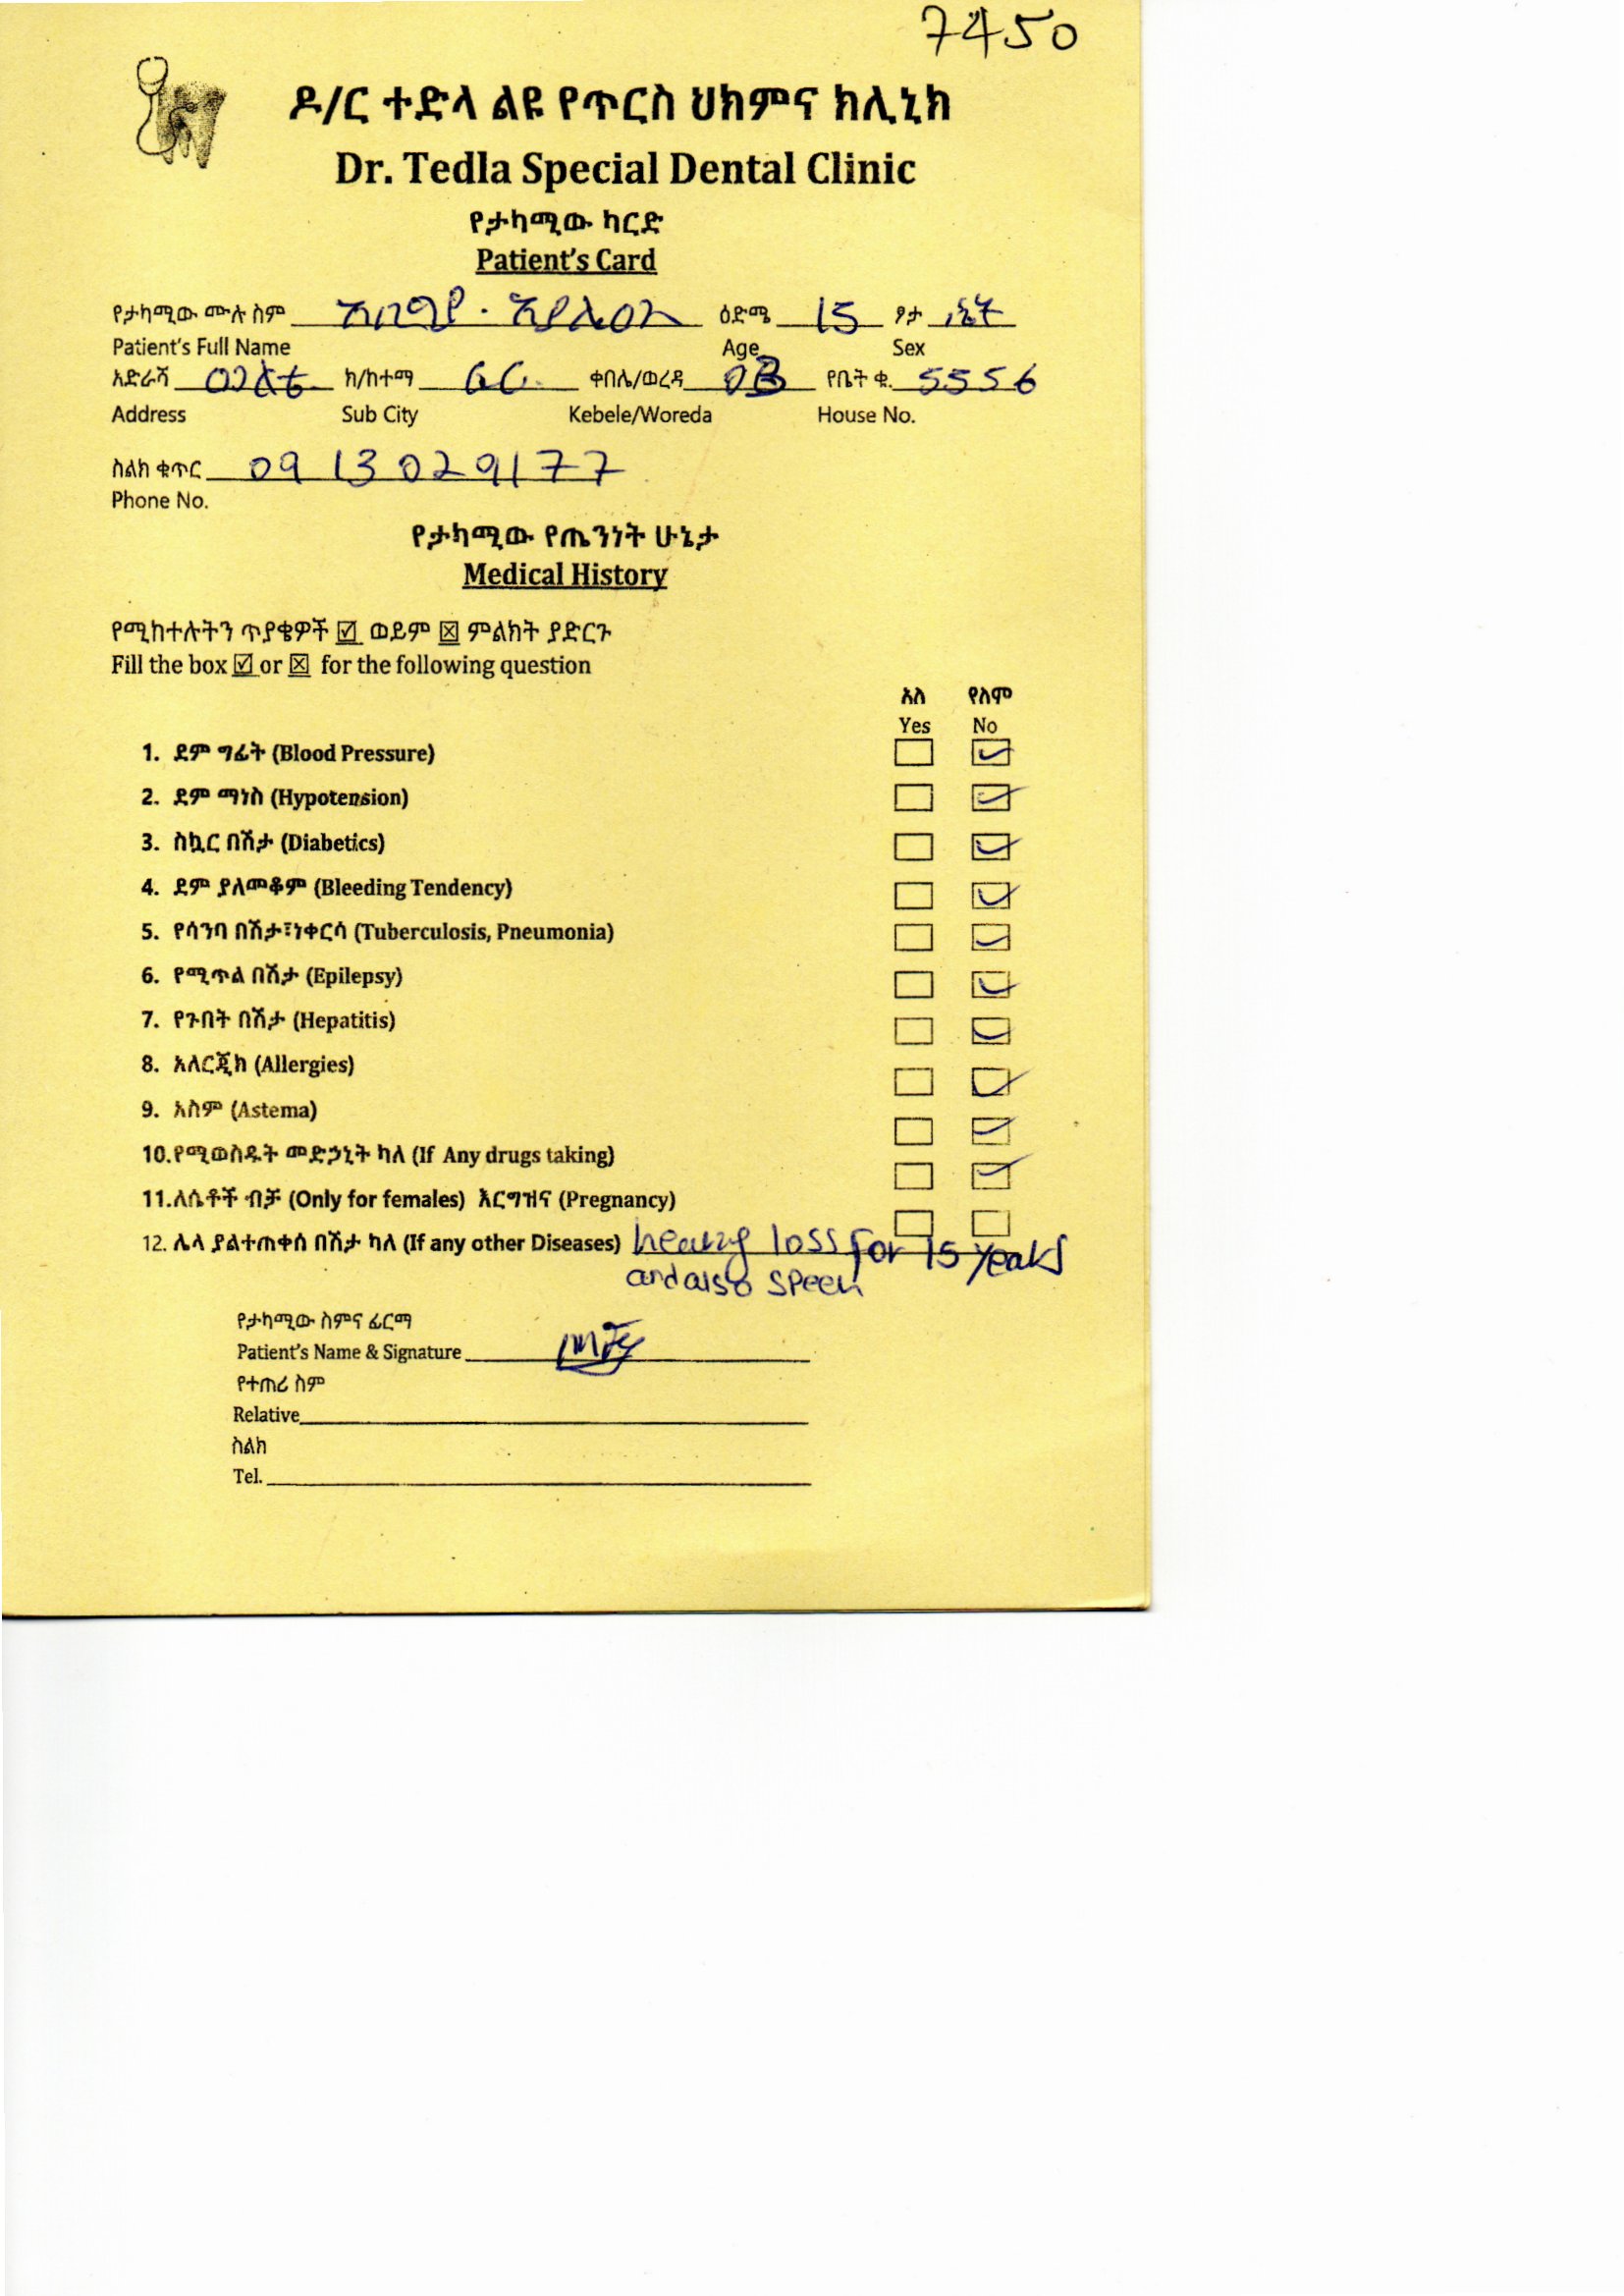 7450
ዶ/ር ተድላ ልዩ የጥርስ ህክምና ክሊኒክ
Dr. Tedla Special Dental Clinic
የታካሚው ካርድ
Patient's Card
የታካሚው ሙሉ ስም ዕድሜ 15 ፆታ ሴት
Patient's Full Name Age Sex
አድራሻ ክ/ከተማ ቀበሌ/ወረዳ የቤት ቁ. 5556
Address Sub City Kebele/Woreda House No.
ስልክ ቁጥር 0913029177
Phone No.
የታካሚው የጤንነት ሁኔታ
Medical History
የሚከተሉትን ጥያቄዎች ☑ ወይም ☒ ምልክት ያድርጉ
Fill the box ☑ or ☒ for the following question
አለ የለም
Yes No
1. ደም ግፊት (Blood Pressure)
2. ደም ማነስ (Hypotension)
3. ስኳር በሽታ (Diabetics)
4. ደም ያለመቆም (Bleeding Tendency)
5. የሳንባ በሽታ፣ነቀርሳ (Tuberculosis, Pneumonia)
6. የሚጥል በሽታ (Epilepsy)
7. የጉበት በሽታ (Hepatitis)
8. አለርጂክ (Allergies)
9. አስም (Astema)
10.የሚወስዱት መድኃኒት ካለ (If Any drugs taking)
11.ለሴቶች ብቻ (Only for females) እርግዝና (Pregnancy)
12. ሌላ ያልተጠቀሰ በሽታ ካለ (If any other Diseases) hearing loss for 15 years
and also speech
የታካሚው ስምና ፊርማ
Patient's Name & Signature
የተጠሪ ስም
Relative
ስልክ
Tel.